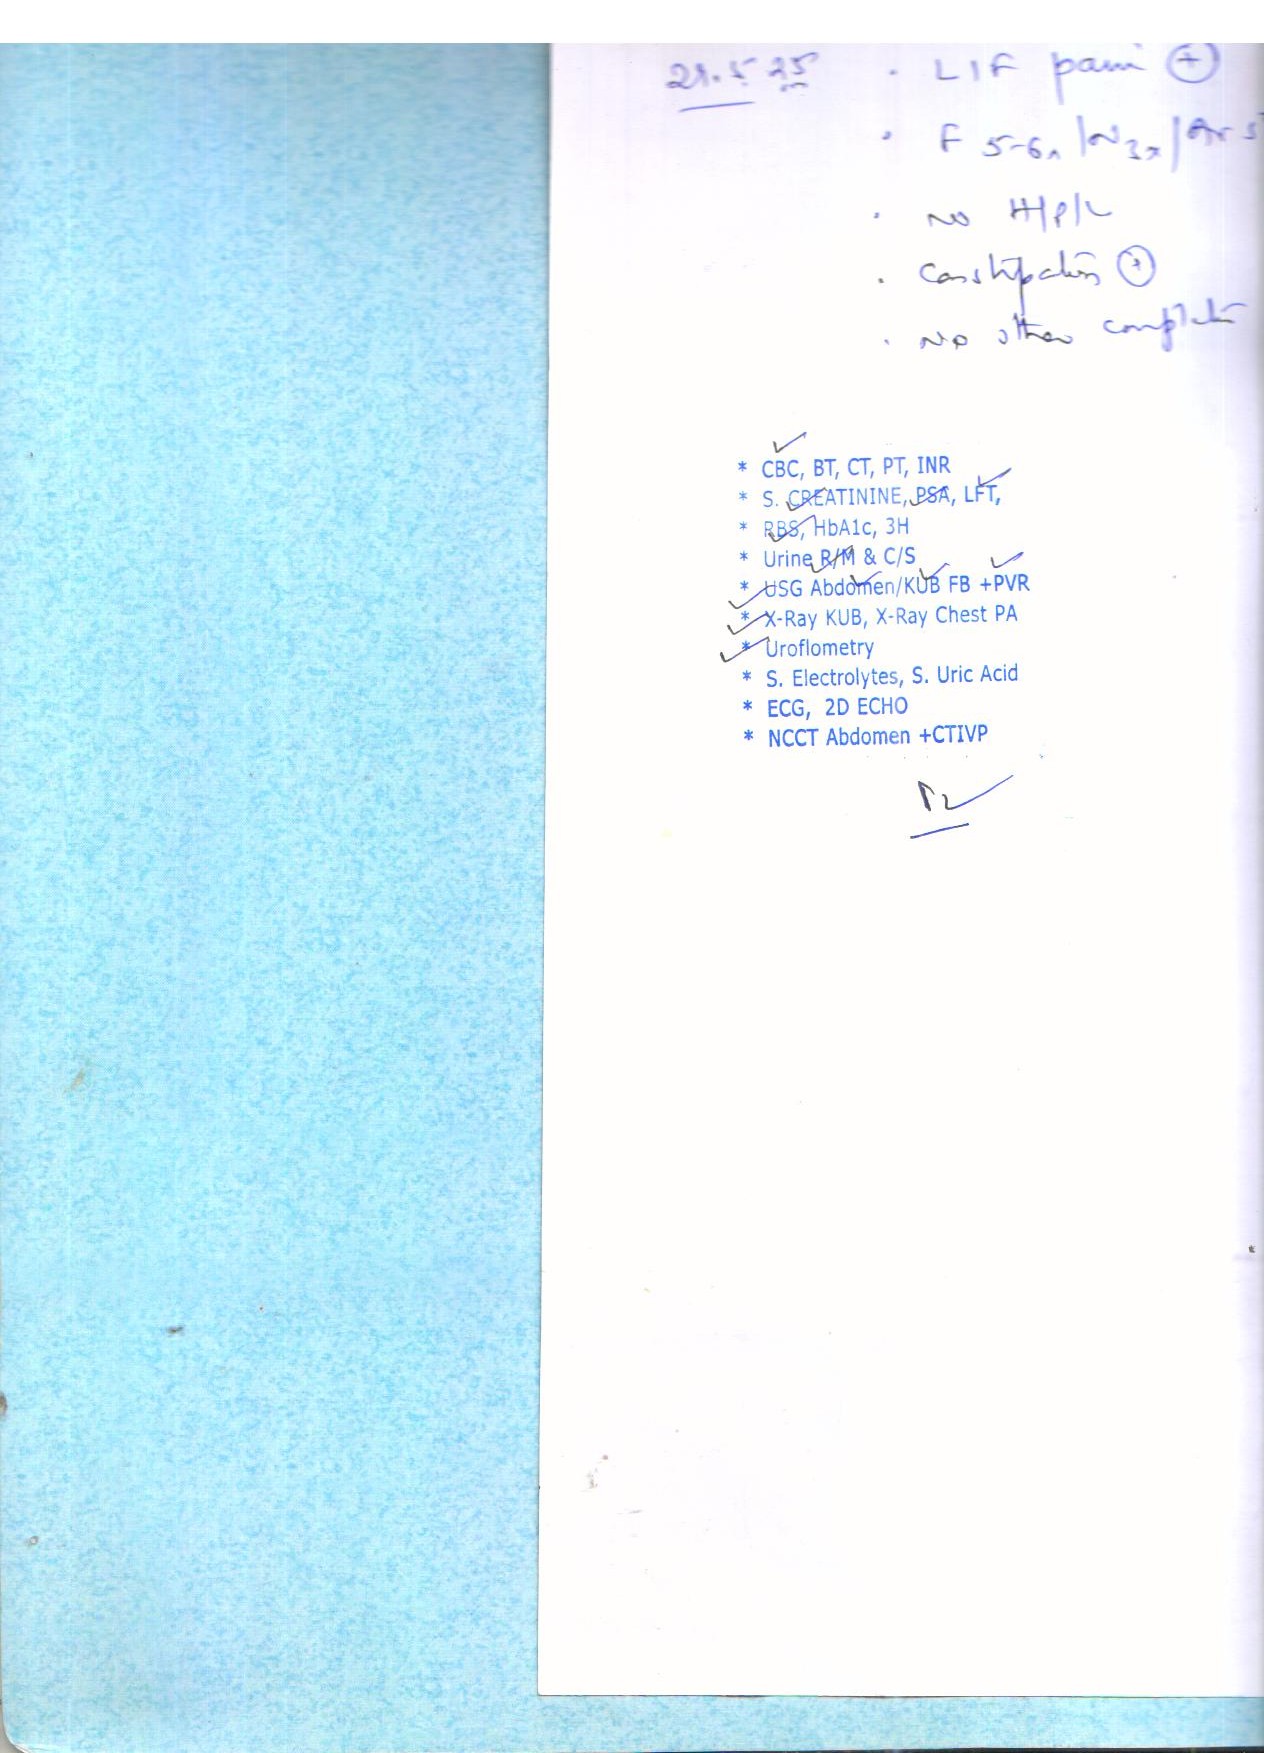 21.5.25 . LIF pain +
. F 5-6x / N 3x /
. No H/P/L
. Constipation +
. No other complaint
* CBC, BT, CT, PT, INR
* S. CREATININE, PSA, LFT,
* RBS, HbA1c, 3H
* Urine R/M & C/S
* USG Abdomen/KUB FB +PVR
* X-Ray KUB, X-Ray Chest PA
* Uroflometry
* S. Electrolytes, S. Uric Acid
* ECG, 2D ECHO
* NCCT Abdomen +CTIVP